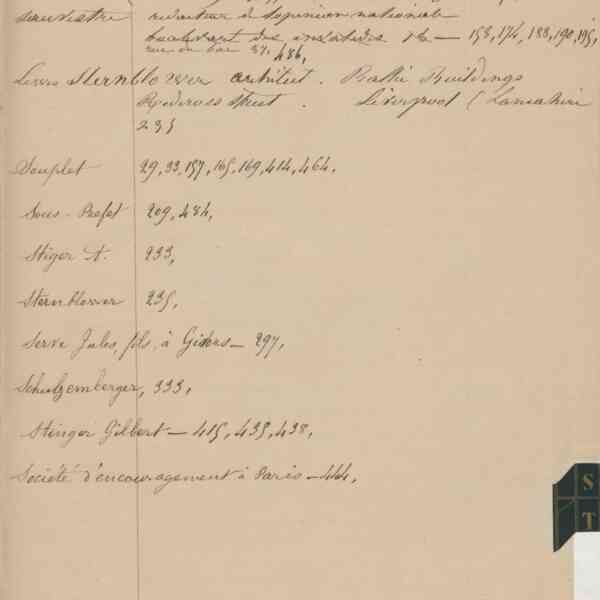 Sauvestre redacteur de l'opinion nationale
boulevart des invalides — 153, 174, 188, 190, 195,
rue du bac 37, 486,
Lewis Sternblower architect. Baltic Buildings
Redcross Street. Liverpool (Lancashire
235
Souplet 29, 33, 157, 165, 169, 414, 464,
Sous-Prefet 209, 484,
Stiger A. 233,
Sternblower 235,
Serve Jules, fils, à Givors — 297,
Schulzemberger, 333,
Stinger Gilbert — 415, 435, 438,
Société d'encouragement à Paris — 444,
S
T